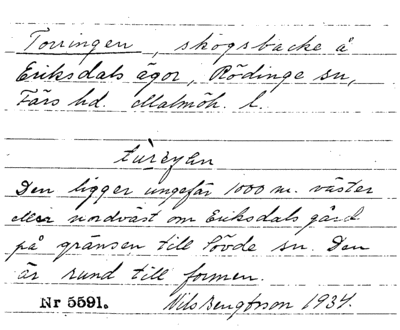 Torringen, skogsbacke å
Eriksdals ägor, Rödinge sn,
Färs hd. Malmöh. l.
Den ligger ungefär 1000 m. väster
eller nordväst om Eriksdals gård
på gränsen till Sövde sn. Den
är rund till formen.
Nr 5591. Nils Bengtsson 1934.